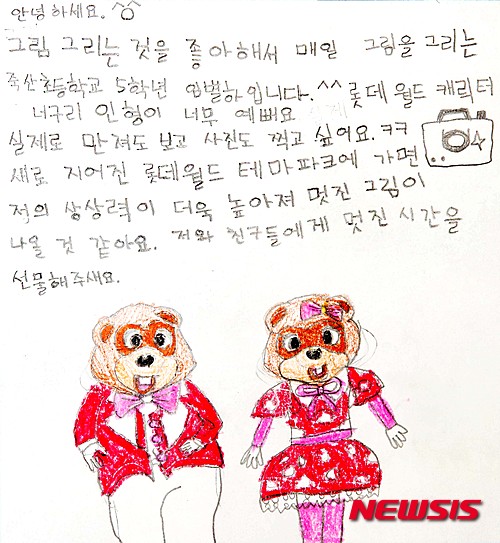 안녕하세요. ^^
그림 그리는 것을 좋아해서 매일 그림을 그리는
죽산초등학교 5학년 임별하입니다.^^ 롯데월드 캐릭터
너구리 인형이 너무 예뻐요
실제로 만져도 보고 사진도 찍고 싶어요.ㅋㅋ
새로 지어진 롯데월드 테마파크에 가면
저의 상상력이 더욱 높아져 멋진 그림이
나올 것 같아요. 저와 친구들에게 멋진 시간을
선물해주세요.
NEWSIS